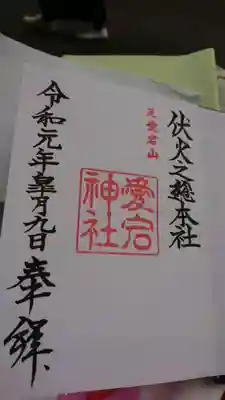 伏火之総本社
元愛宕山
愛宕
神社
令和元年皐月九日奉拝